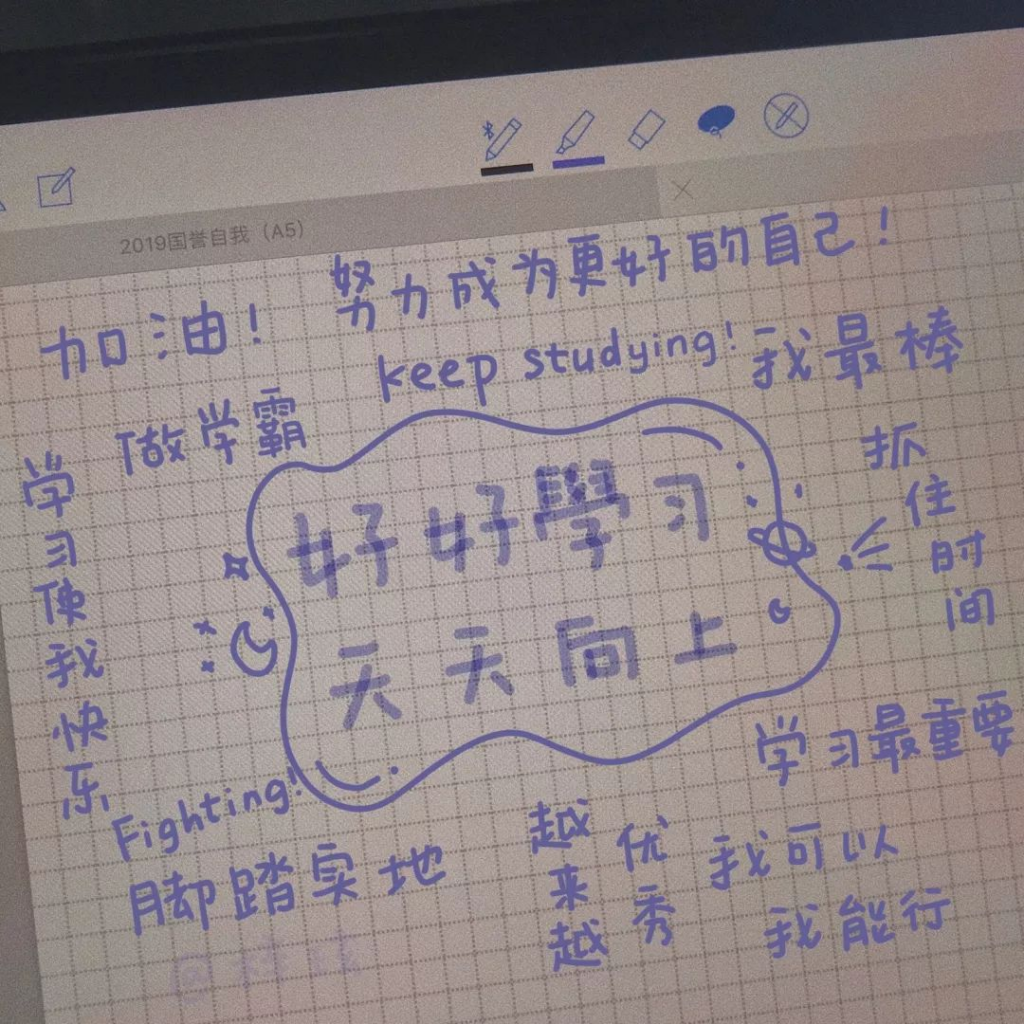 2019国誉自我（A5）
努力成为更好的自己！
加油！
keep studying!
我最棒
做学霸
学习使我快乐
抓住时间
好好學习
天天向上
学习最重要
Fighting!
脚踏实地
越来越优秀
我可以
我能行